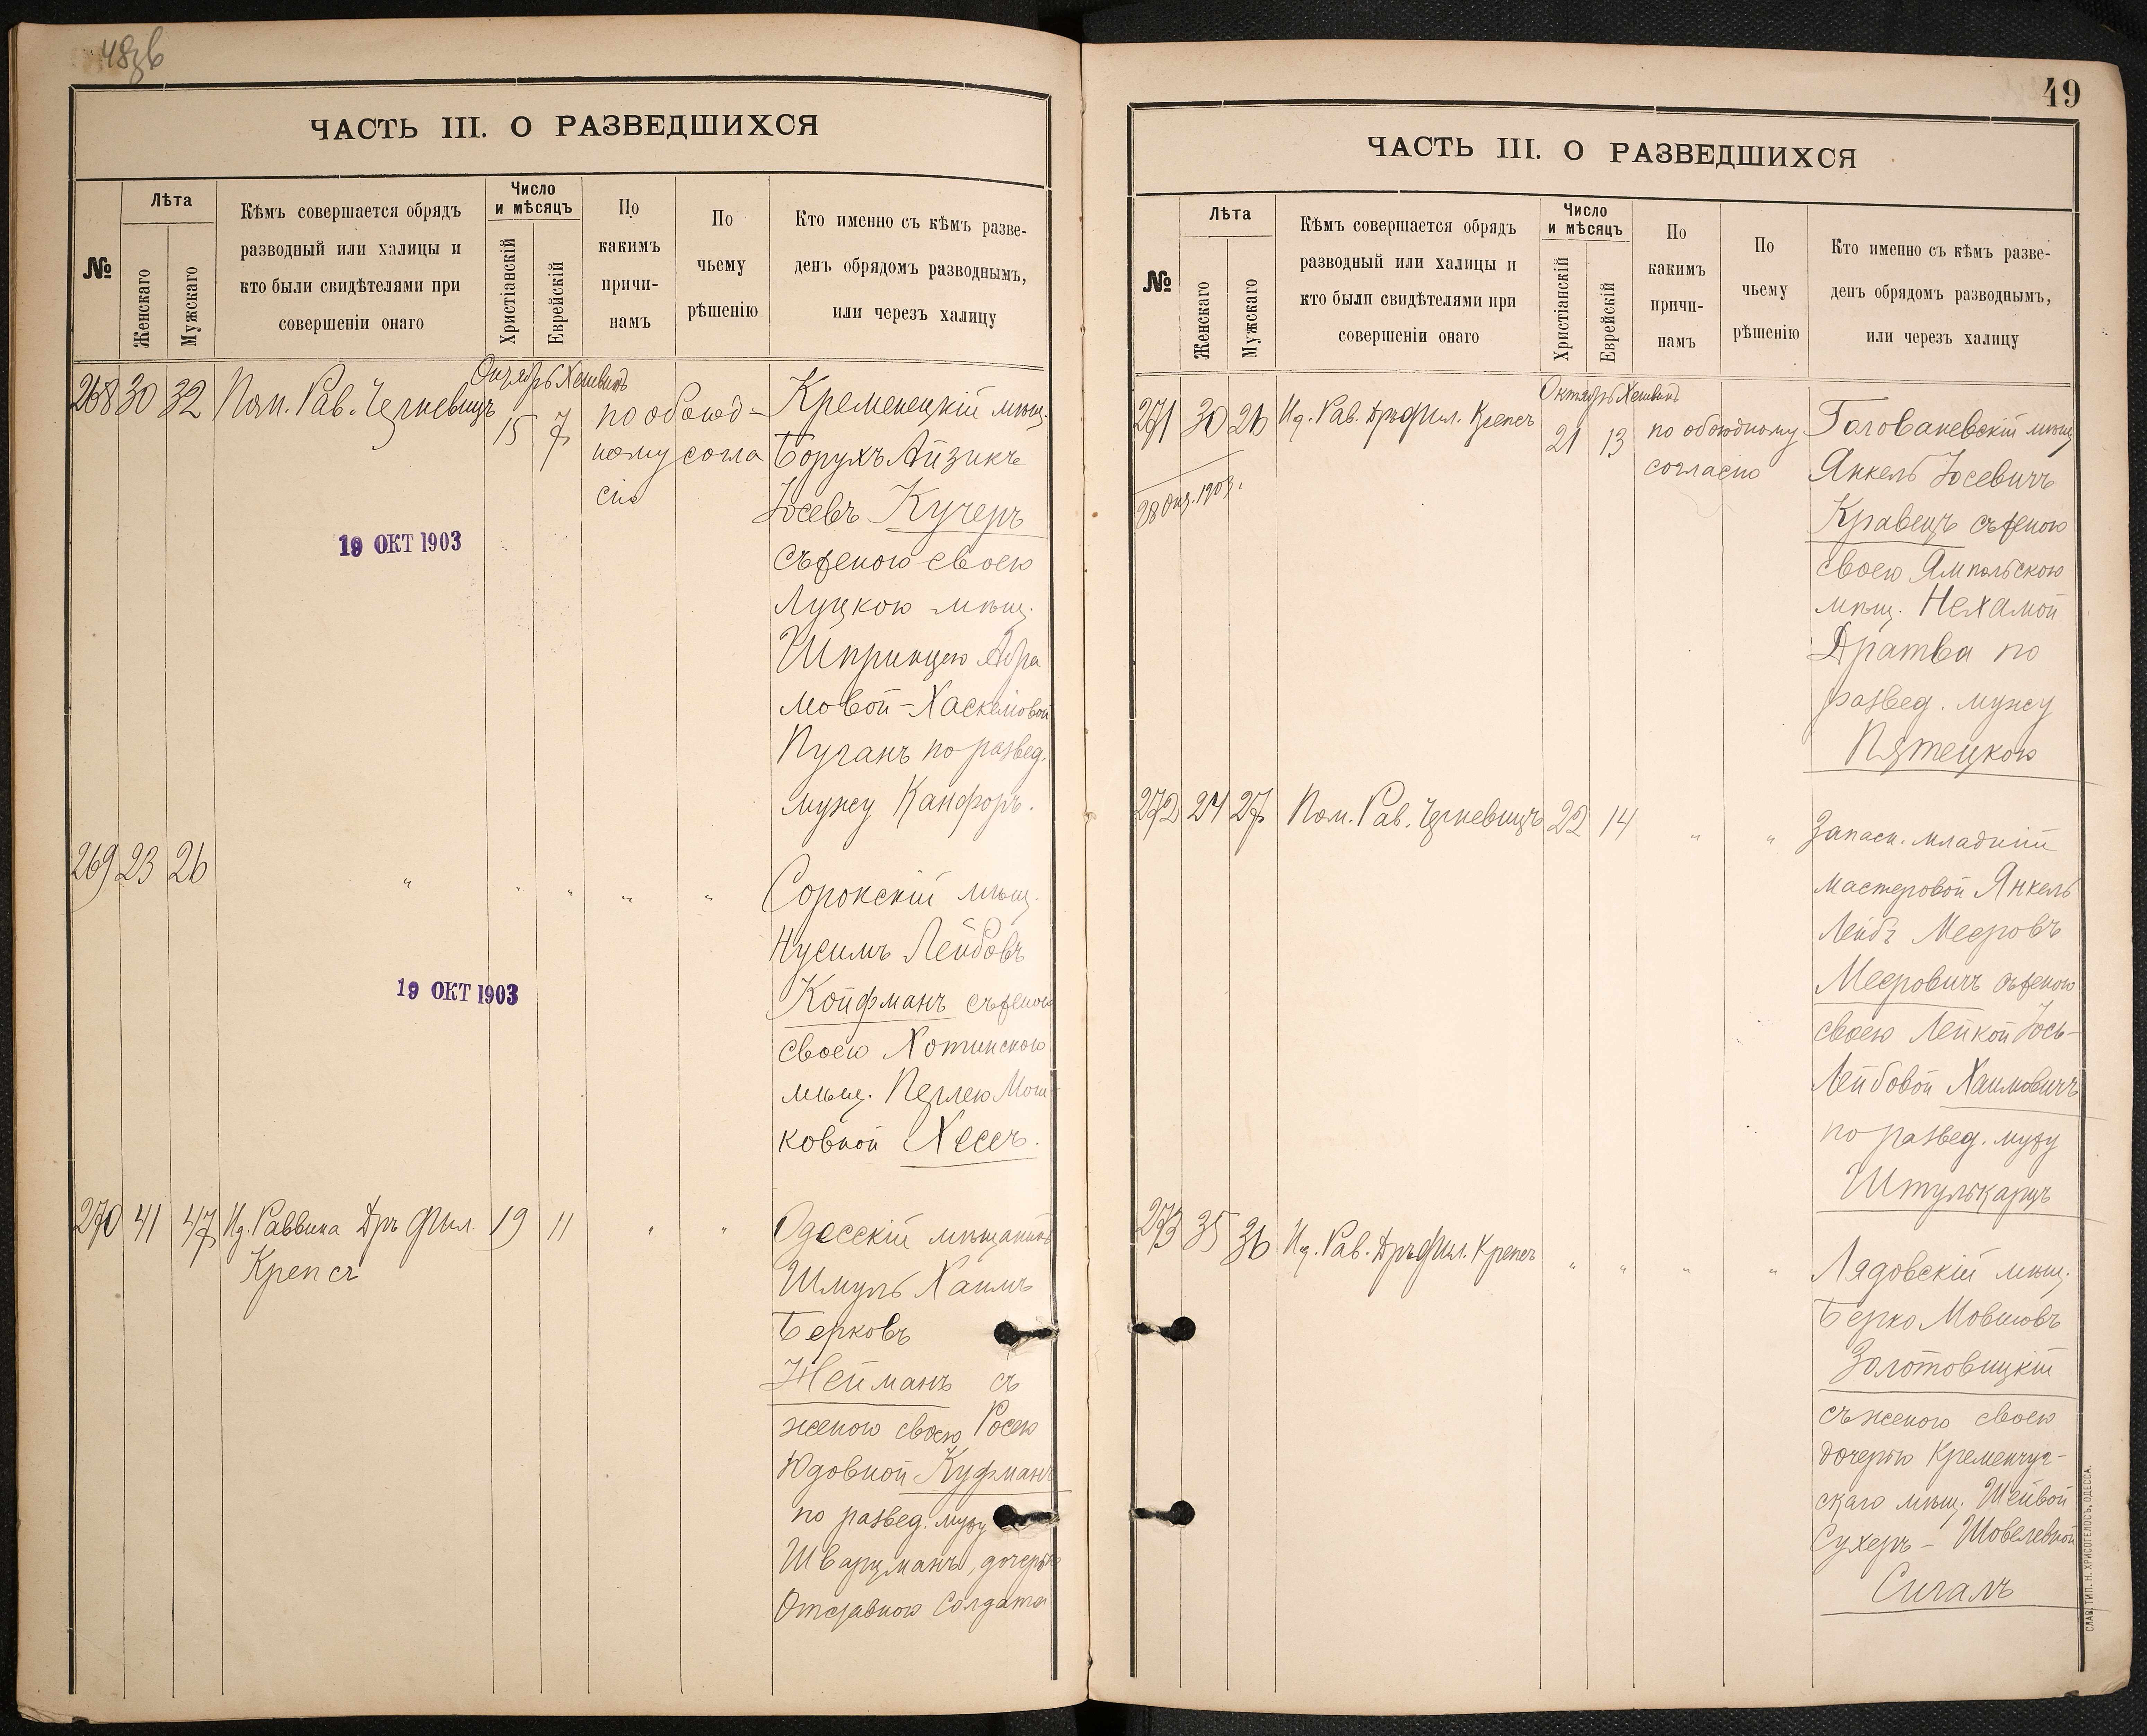 48об
ЧАСТЬ III. О РАЗВЕДШИХСЯ
№
Лѣта
Женскаго
Мужскаго
Кѣмъ совершается обрядъ
разводный или халицы и
кто были свидѣтелями при
совершеніи онаго
Число
и мѣсяцъ
Христіанскій
Еврейскій
По
какимъ
причи-
намъ
По
чьему
рѣшенію
Кто именно съ кѣмъ разве-
денъ обрядомъ разводнымъ,
или черезъ халицу
Октябрь Хешвенъ
268 30 32 Пом. Рав. Черневицъ 15 7 по обоюд-
ному согла
сію
Кременецкій мѣщ.
Борухъ Айзикъ
Іосевъ Кучеръ
съ женою своею
Луцкою мѣщ.
Шпринцею Абра
мовой-Хаскелювой
Пуганъ по развед.
мужу Канфоръ.
19 ОКТ 1903
269 23 26 " " " " "
Сорокскій мѣщ.
Нусимъ Лейбовъ
Койфманъ съ женою
своею Хотинскою
мѣщ. Перлею Мош-
ковной Хессъ.
19 ОКТ 1903
270 41 47 Ид. Раввина Дръ Фил.
Крепсъ
19 11 " "
Одесскій мѣщанинъ
Шмуль Хаимъ
Берковъ
Нейманъ съ
женою своею Росею
Юдовной Куфманъ
по развед. мужу
Шварцманъ, дочерью
Отставного Солдата
49
ЧАСТЬ III. О РАЗВЕДШИХСЯ
№
Лѣта
Женскаго
Мужскаго
Кѣмъ совершается обрядъ
разводный или халицы и
кто были свидѣтелями при
совершеніи онаго
Число
и мѣсяцъ
Христіанскій
Еврейскій
По
какимъ
причи-
намъ
По
чьему
рѣшенію
Кто именно съ кѣмъ разве-
денъ обрядомъ разводнымъ,
или черезъ халицу
Октябрь Хешвенъ
271 30 26 Ид. Рав. Дръ Фил. Крепсъ 21 13 по обоюдному
согласію
28 Окт. 1903.
Голованевскій мѣщ
Янкель Іосевичъ
Кравецъ съ женою
своею Ямпольскою
мѣщ. Нехамой
Дратва по
развед. мужу
Пятецкою
272 24 27 Пом. Рав. Черневицъ 22 14 " "
Запасн. младшій
мастеровой Янкель
Лейбъ Мееровъ
Мееровичъ съ женою
своею Лейкой Іось-
Лейбовой Хаимовичъ
по развед. мужу
Штулькарцъ
273 35 36 Ид. Рав. Дръ Фил. Крепсъ " " " "
Лядовскій мѣщ.
Берко Мовшовъ
Золотовицкій
съ женою своею
дочерью Кременчуг-
скаго мѣщ. Шейвой
Сухеръ - Шовелевной
Сигалъ
СЛАВ. ТИП. Н. ХРИСОГЕЛОСЪ, ОДЕССА.